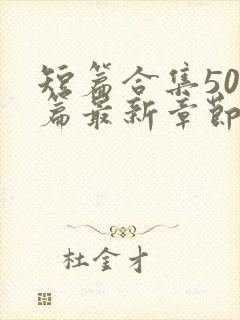 短篇合集50
篇最新章節
杜金才